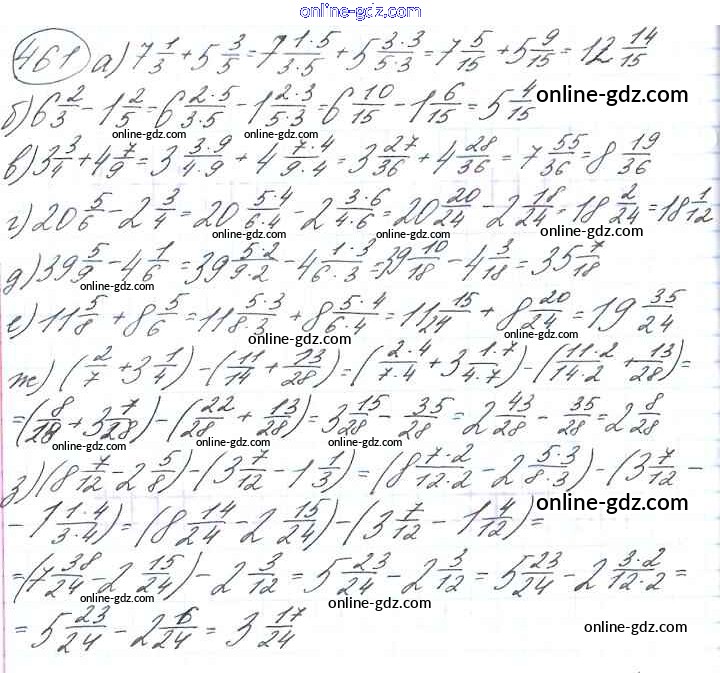 online-gdz.com
461 а) 7 1/3 + 5 3/5 = 7 1·5/3·5 + 5 3·3/5·3 = 7 5/15 + 5 9/15 = 12 14/15
online-gdz.com
б) 6 2/3 - 1 2/5 = 6 2·5/3·5 - 1 2·3/5·3 = 6 10/15 - 1 6/15 = 5 4/15
online-gdz.com online-gdz.com online-gdz.com
в) 3 3/4 + 4 7/9 = 3 3·9/4·9 + 4 7·4/9·4 = 3 27/36 + 4 28/36 = 7 55/36 = 8 19/36
online-gdz.com
г) 20 5/6 - 2 3/4 = 20 5·4/6·4 - 2 3·6/4·6 = 20 20/24 - 2 18/24 = 18 2/24 = 18 1/12
online-gdz.com online-gdz.com online-gdz.com
д) 39 5/9 - 4 1/6 = 39 5·2/9·2 - 4 1·3/6·3 = 39 10/18 - 4 3/18 = 35 7/18
online-gdz.com
е) 11 5/8 + 8 5/6 = 11 5·3/8·3 + 8 5·4/6·4 = 11 15/24 + 8 20/24 = 19 35/24
online-gdz.com online-gdz.com
ж) (2/7 + 3 1/4) - (11/14 + 13/28) = (2·4/7·4 + 3 1·7/4·7) - (11·2/14·2 + 13/28) =
online-gdz.com
= (8/28 + 3 7/28) - (22/28 + 13/28) = 3 15/28 - 35/28 = 2 43/28 - 35/28 = 2 8/28
online-gdz.com online-gdz.com online-gdz.com
з) (8 7/12 - 2 5/8) - (3 7/12 - 1 1/3) = (8 7·2/12·2 - 2 5·3/8·3) - (3 7/12 -
online-gdz.com
- 1 1·4/3·4) = (8 14/24 - 2 15/24) - (3 7/12 - 1 4/12) =
online-gdz.com
= (7 38/24 - 2 15/24) - 2 3/12 = 5 23/24 - 2 3/12 = 5 23/24 - 2 3·2/12·2 =
online-gdz.com
= 5 23/24 - 2 6/24 = 3 17/24
online-gdz.com